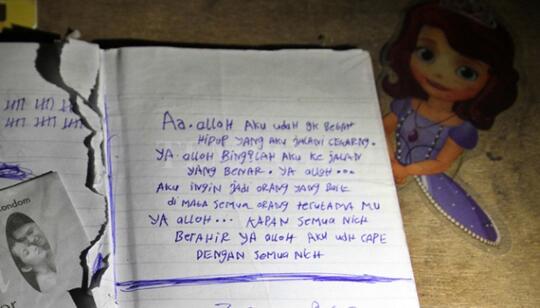 ondom
Aa. alloh aku udah gk betah
hidup yang aku jalani cekarng.
ya. alloh bingblah aku ke jalan
yang benar. ya alloh...
aku ingin jadi orang yang baik
di mata semua orang terutama mu
ya alloh... kapan semua nich
berahir ya alloh aku udh cape
dengan semua nich